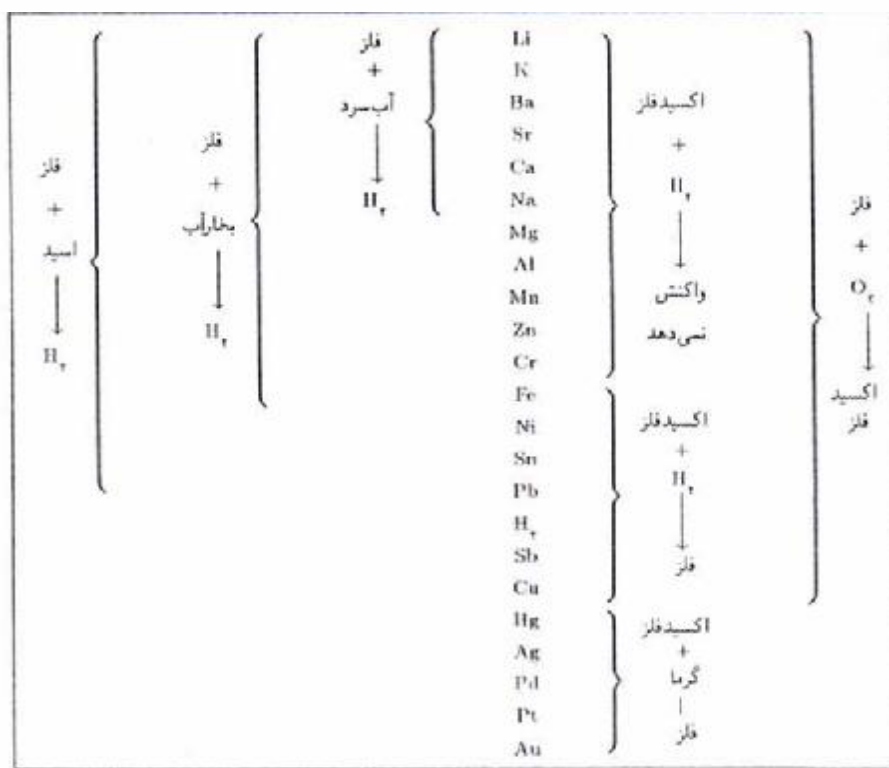 فلز
+
اسید
↓
H۲
فلز
+
بخارآب
↓
H۲
فلز
+
آب سرد
↓
H۲
Li
K
Ba
Sr
Ca
Na
Mg
Al
Mn
Zn
Cr
Fe
Ni
Sn
Pb
H۲
Sb
Cu
Hg
Ag
Pd
Pt
Au
اکسیدفلز
+
H۲
↓
واکنش
نمی‌دهد
اکسیدفلز
+
H۲
↓
فلز
اکسیدفلز
+
گرما
|
فلز
فلز
+
O۲
↓
اکسید
فلز